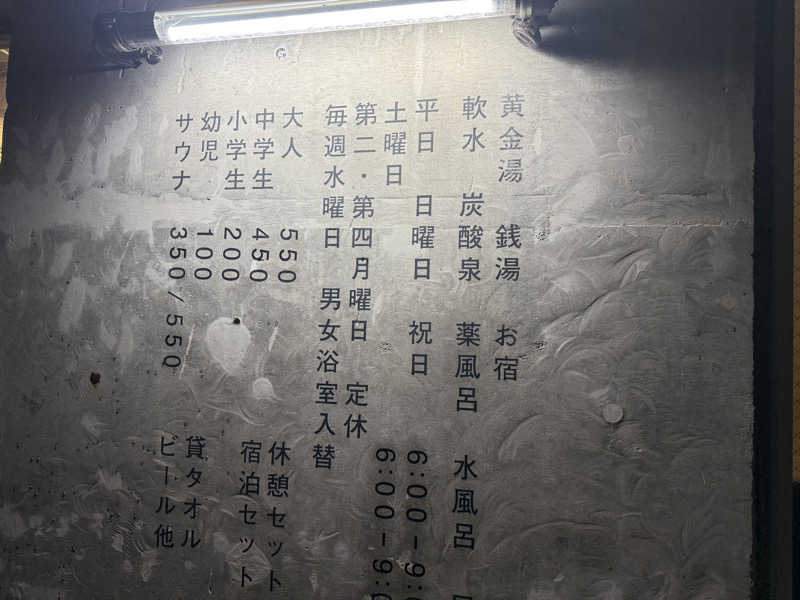 黄金湯 銭湯 お宿
軟水 炭酸泉 薬風呂 水風呂
平日 日曜日 祝日 6:00-9:0
土曜日 6:00-9:0
第二・第四月曜日 定休
毎週水曜日 男女浴室入替
大人 550 休憩セット
中学生 450 宿泊セット
小学生 200
幼児 100 貸タオル
サウナ 350/550 ビール他